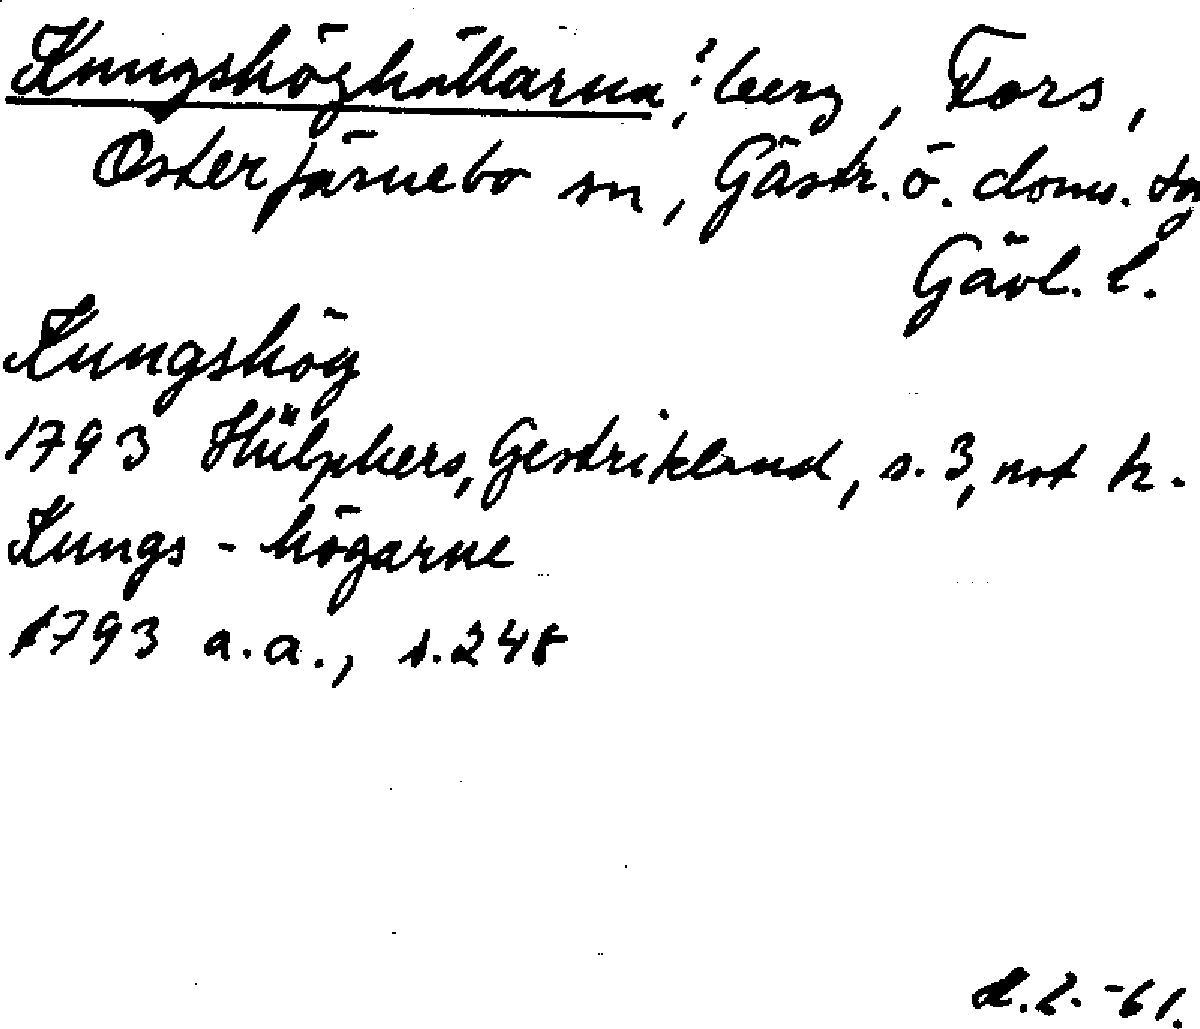 Kungshöghällarna, ? berg, Fors,
Österfärnebo sn, Gästr. ö. doms. tg
Gävl. l.
Kungshög
1793 Hülphers, Gestrikland, s. 3, not h.
Kungs-högarne
1793 a.a., s. 248
L.L.-61.